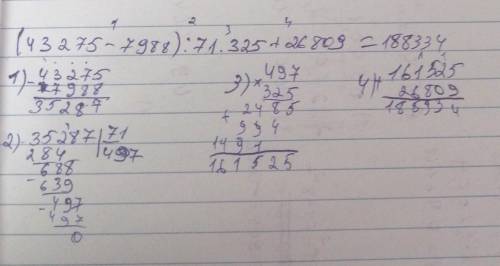 1 2 3 4
(43275-7988):71.325+26809=188334
1) - 43275
7988
35287
2) - 35287 | 71
284 | 497
- 688
639
- 497
497
0
3) × 497
325
+ 2485
994
1491
161525
4) + 161525
26809
188334